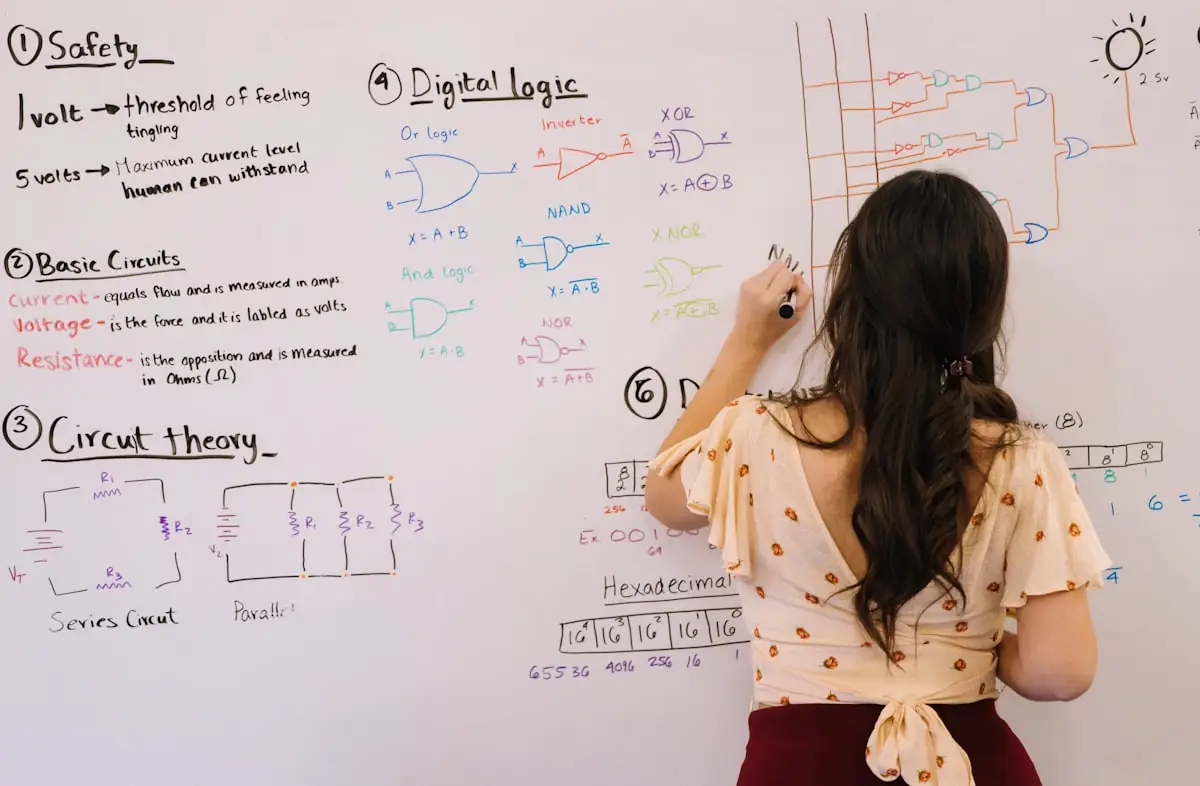 ① Safety
1 volt → threshold of feeling
tingling
5 volts → Maximum current level
human can withstand
② Basic Circuits
Current - equals flow and is measured in amps.
Voltage - is the force and it is labled as volts
Resistance - is the opposition and is measured
in Ohms (Ω)
③ Circuit theory
R₁
R₂
R₃
VT
Series Circut
R₁
R₂
R₃
Parallel
④ Digital logic
Or logic
A
B
X
X = A + B
And logic
A
B
X
X = A · B
Inverter
A
A̅
NAND
A
B
X
X = A̅·̅B̅
NOR
A
B
X
X = A̅+̅B̅
XOR
A
B
X
X = A ⊕ B
X NOR
X = A̅⊕̅B̅
2.5v
(8)
8¹ 8⁰
8 1
1 6 =
4
256
Ex 001
64
Hexadecimal
16⁴ 16³ 16² 16¹ 16⁰
65536 4096 256 16 1